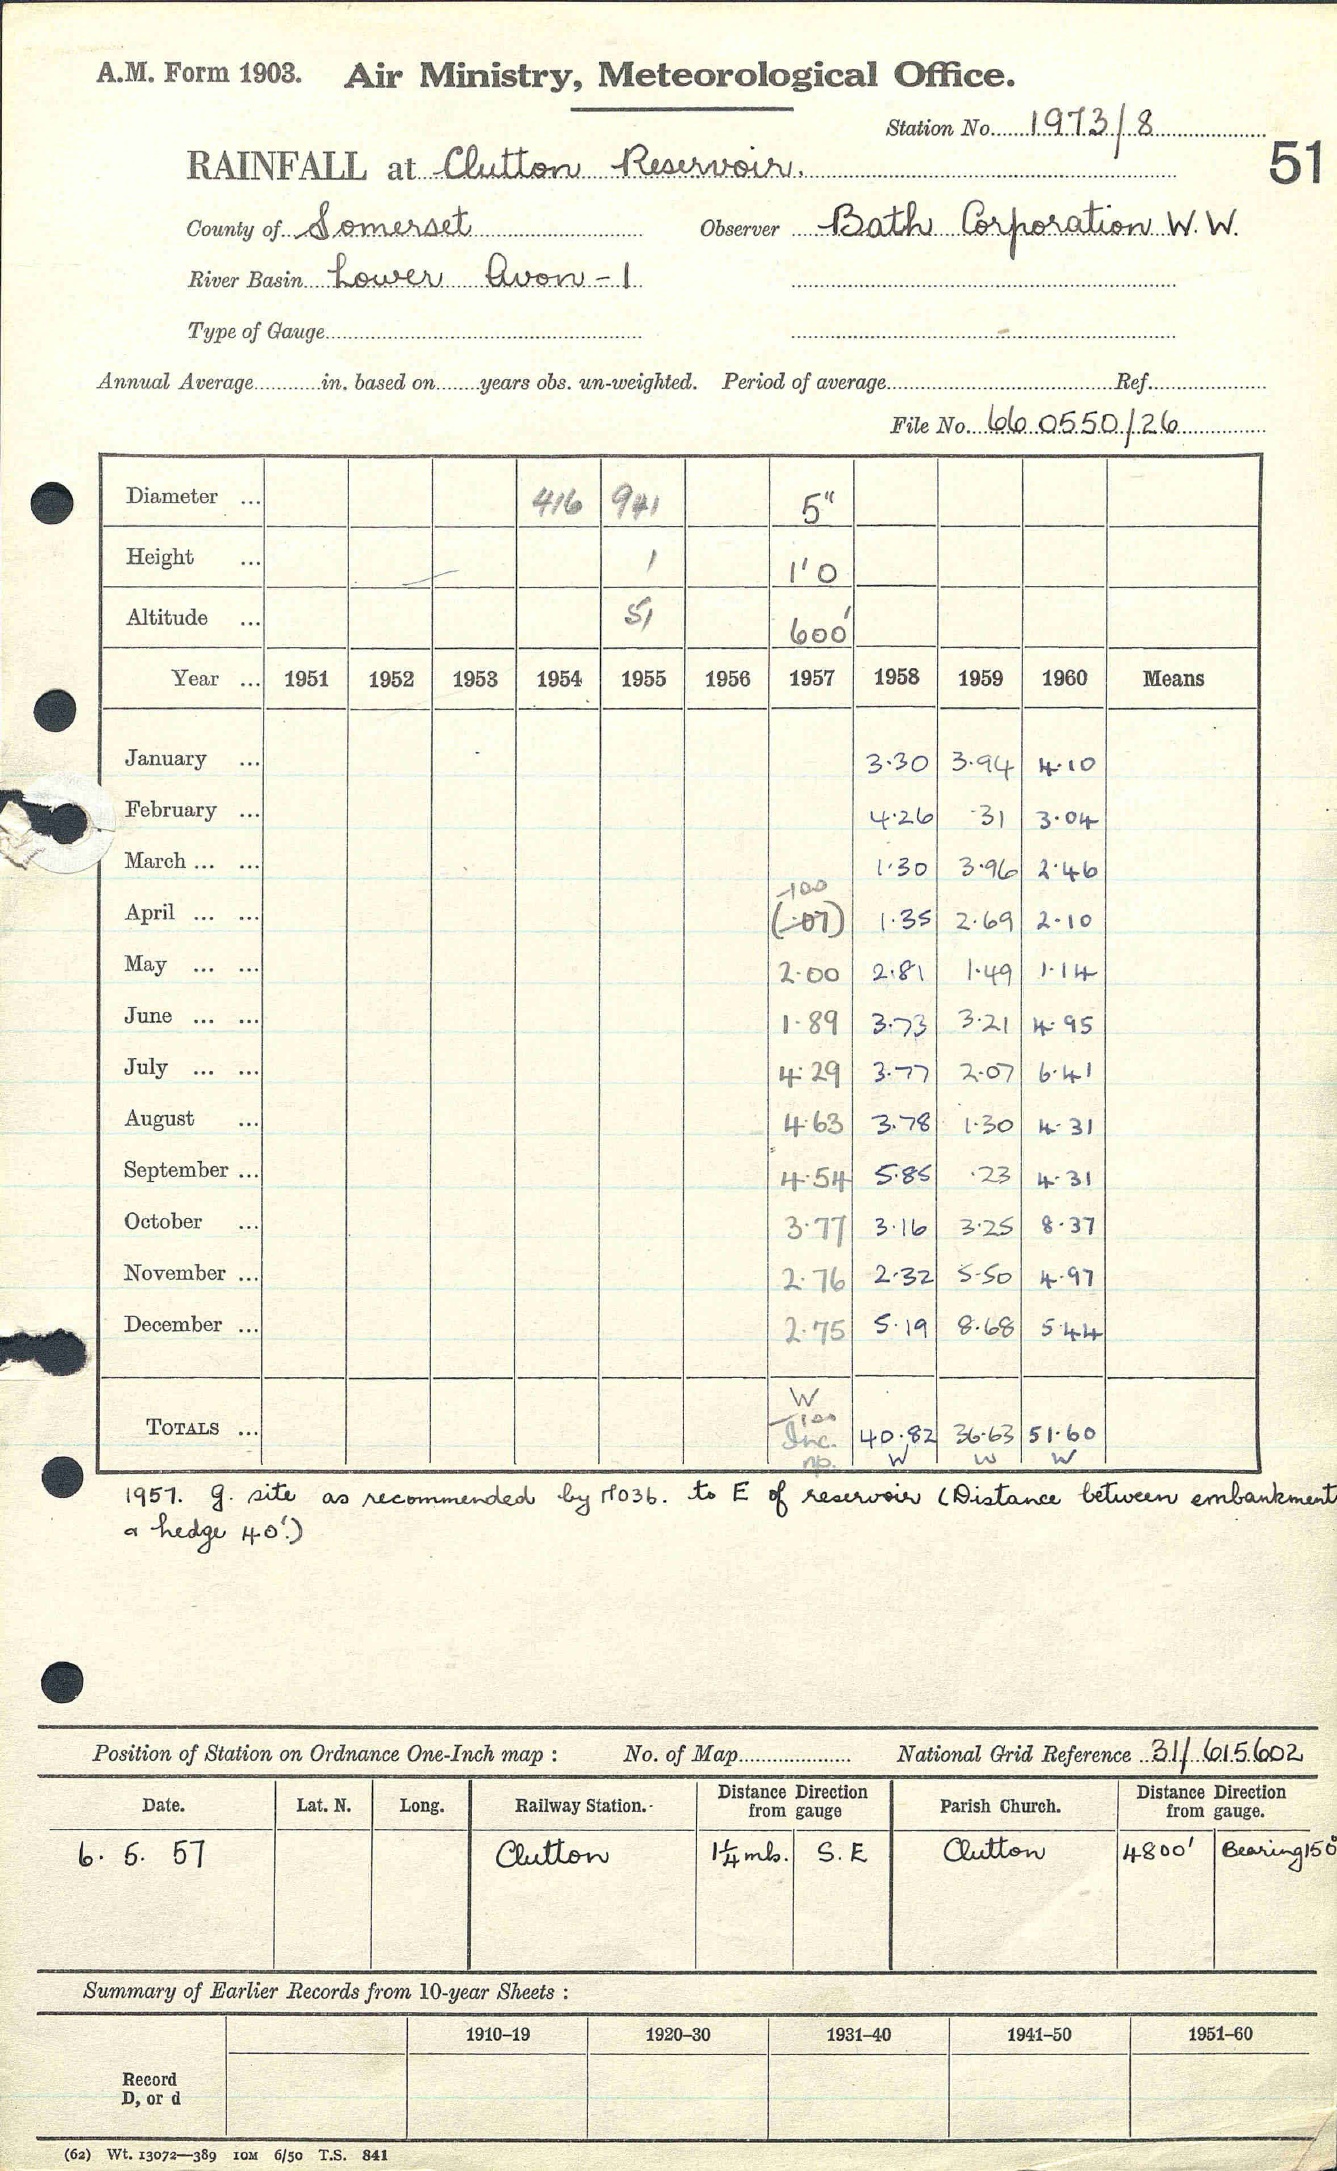 A.M. Form 1903. Air Ministry, Meteorological Office.
Station No. 1973/8
51
RAINFALL at Clutton Reservoir.
County of Somerset Observer Bath Corporation W.W.
River Basin Lower Avon-1
Type of Gauge
Annual Average in. based on years obs. un-weighted. Period of average Ref.
File No. 660550/26
Diameter ... 416 941 5"
Height ... 1 1'0
Altitude ... 51 600'
Year ... 1951 1952 1953 1954 1955 1956 1957 1958 1959 1960 Means
January ... 3.30 3.94 4.10
February ... 4.26 .31 3.04
March ... ... 1.30 3.96 2.46
April ... ... (.07) 1.35 2.69 2.10
May ... ... 2.00 2.81 1.49 1.14
June ... ... 1.89 3.73 3.21 4.95
July ... ... 4.29 3.77 2.07 6.41
August ... 4.63 3.78 1.30 4.31
September ... 4.54 5.85 .23 4.31
October ... 3.77 3.16 3.25 8.37
November ... 2.76 2.32 5.50 4.97
December ... 2.75 5.19 8.68 5.44
W
TOTALS ... Inc. 40.82 36.63 51.60
np. W W W
1957. g. site as recommended by M036. to E of reservoir (Distance between embankment
& hedge 40'.)
Position of Station on Ordnance One-Inch map : No. of Map National Grid Reference 31/615602
Date. Lat. N. Long. Railway Station. Distance Direction from gauge Parish Church. Distance Direction from gauge.
6. 5. 57 Clutton 1¼ mls. S.E Clutton 4800' Bearing 150°
Summary of Earlier Records from 10-year Sheets :
1910–19 1920–30 1931–40 1941–50 1951–60
Record
D, or d
(62) Wt. 13072—389 10M 6/50 T.S. 841